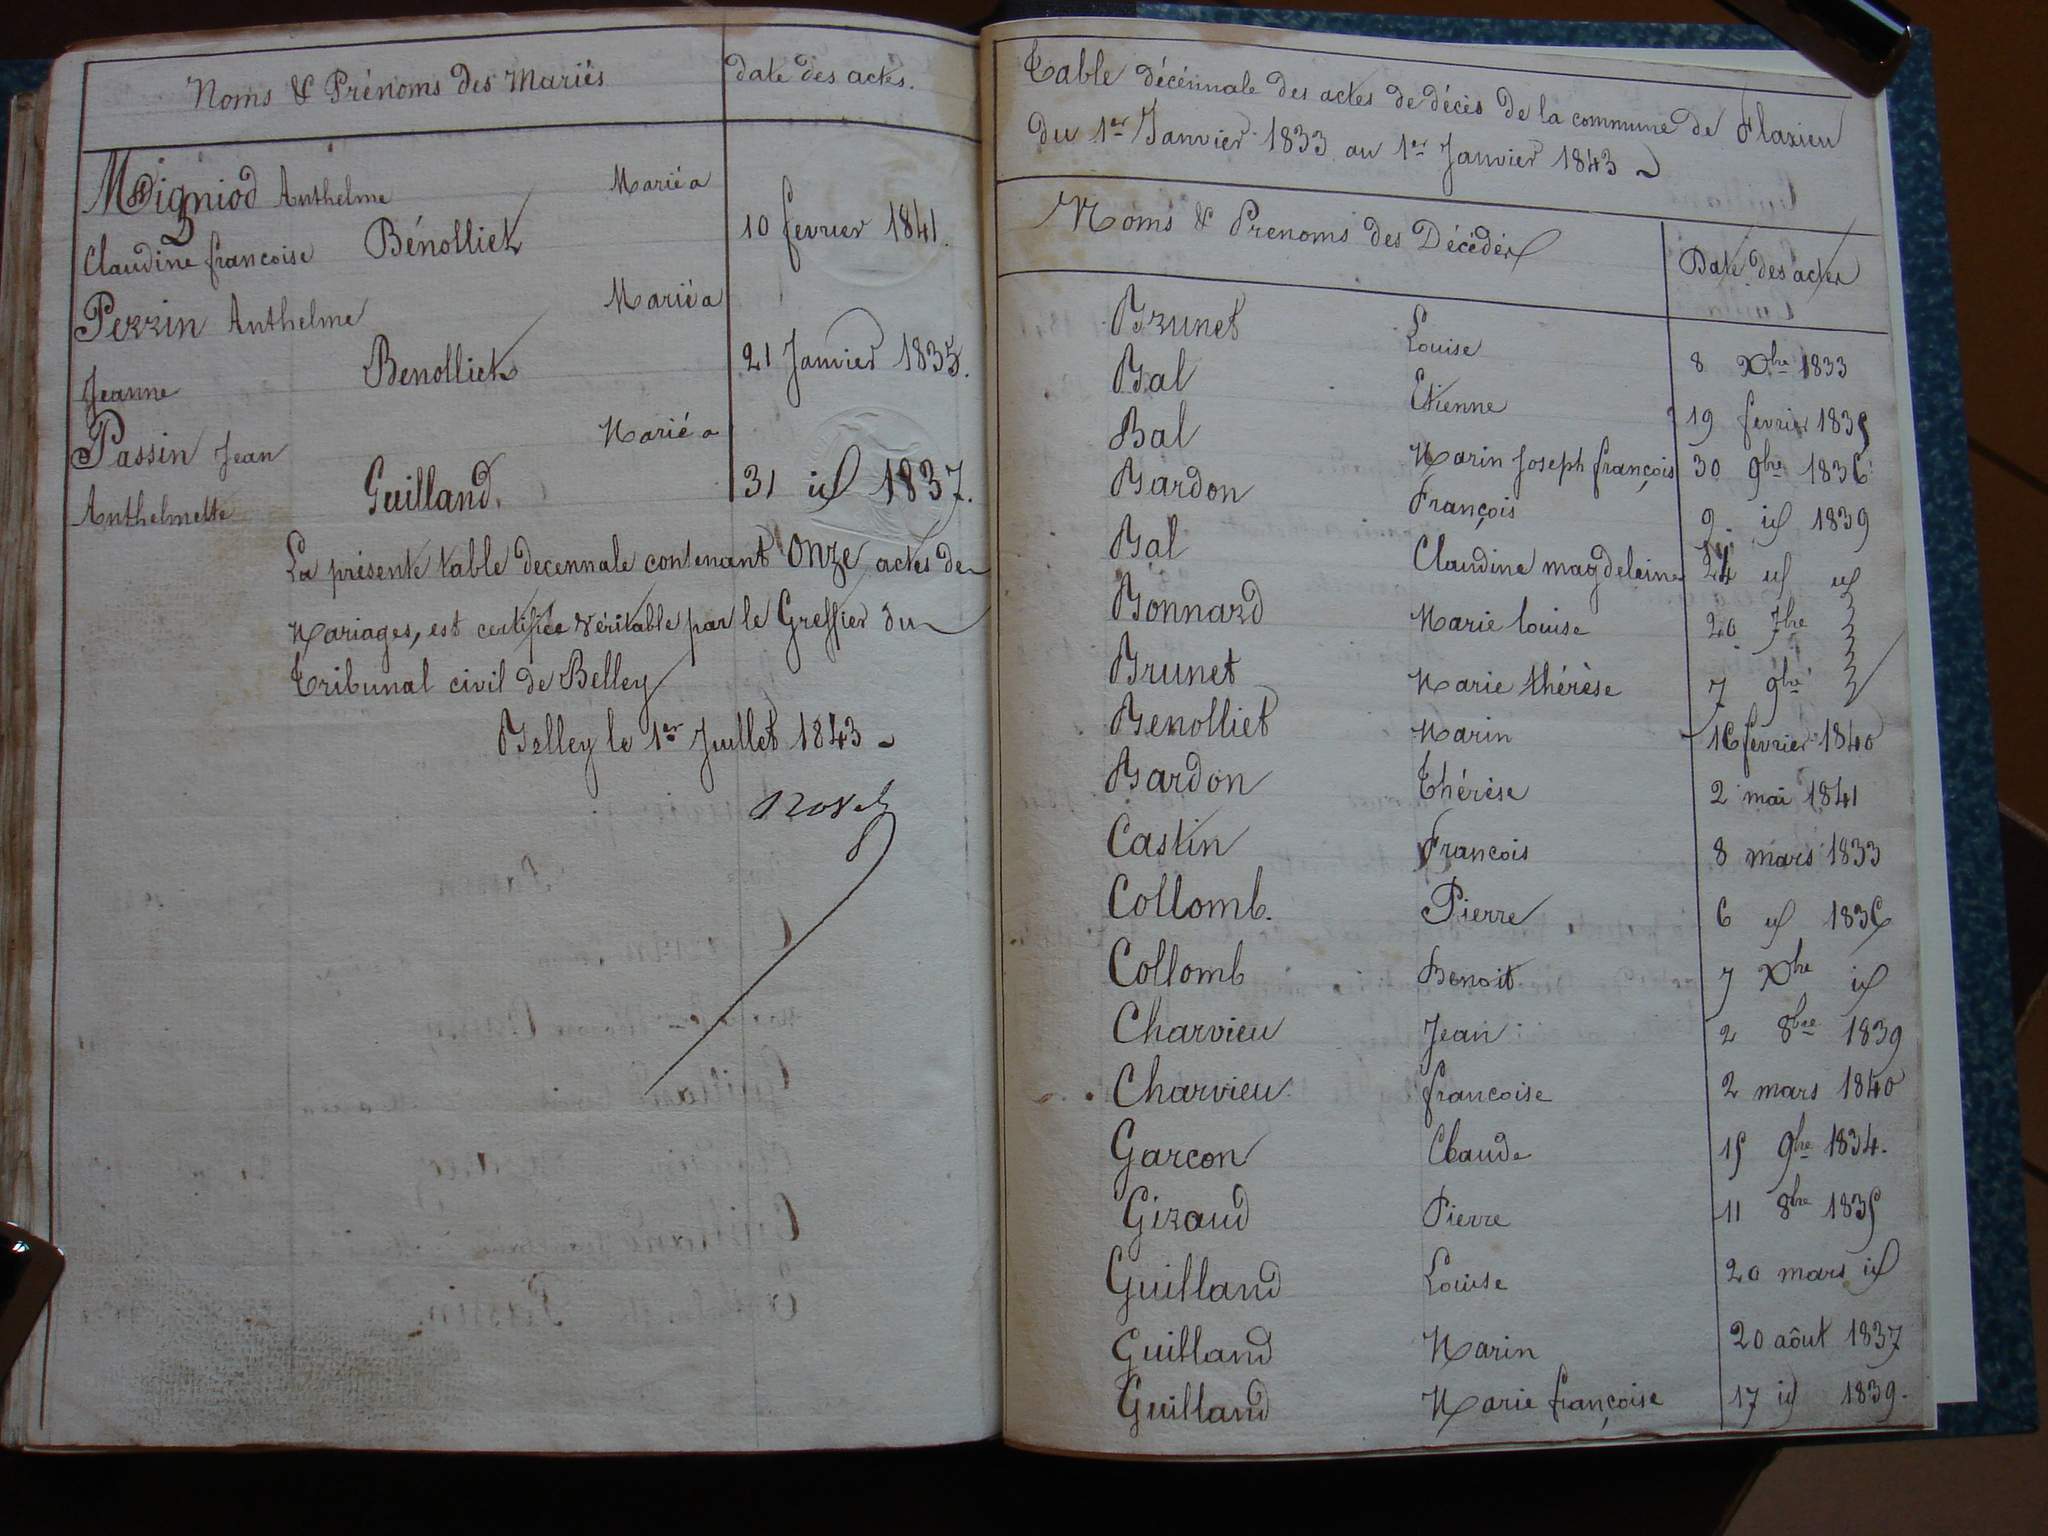 Noms & Prénoms des Mariés date des actes.
Migniod Anthelme Marié a
Claudine francoise Bénolliet 10 fevrier 1841.
Perrin Anthelme Marié a
Jeanne Benolliet 21 Janvier 1835.
Passin Jean Marié a
Anthelmette Guilland. 31 id 1837.
La présente table decennale contenant onze actes de
Mariages, est certifiée véritable par le Greffier du
Tribunal civil de Belley
Belley le 1er Juillet 1843
Table décénnale des actes de décès de la commune de Flaxieu
du 1er Janvier 1833 au 1er Janvier 1843
Noms & Prenoms des Décédés Date des actes
Brunet Louise 8 Xbre 1833
Bal Etienne 19 fevrier 1835
Bal Marin Joseph françois 30 9bre 1836
Bardon François 9 id 1839
Bal Claudine magdeleine 24 id id
Bonnard Marie louise 20 7bre
Brunet Marie thérèse 7 9bre
Benolliet Marin 16 fevrier 1840
Bardon Thérèse 2 mai 1841
Castin francois 8 mars 1833
Collomb. Pierre 6 id 1836
Collomb Benoit 7 Xbre id
Charvieu Jean 2 8bre 1839
Charvieu francoise 2 mars 1840
Garcon Claude 15 9bre 1834.
Giraud Pierre 11 8bre 1835
Guilland Louise 20 mars id
Guilland Marin 20 aôut 1837
Guilland Marie françoise 17 id 1839.